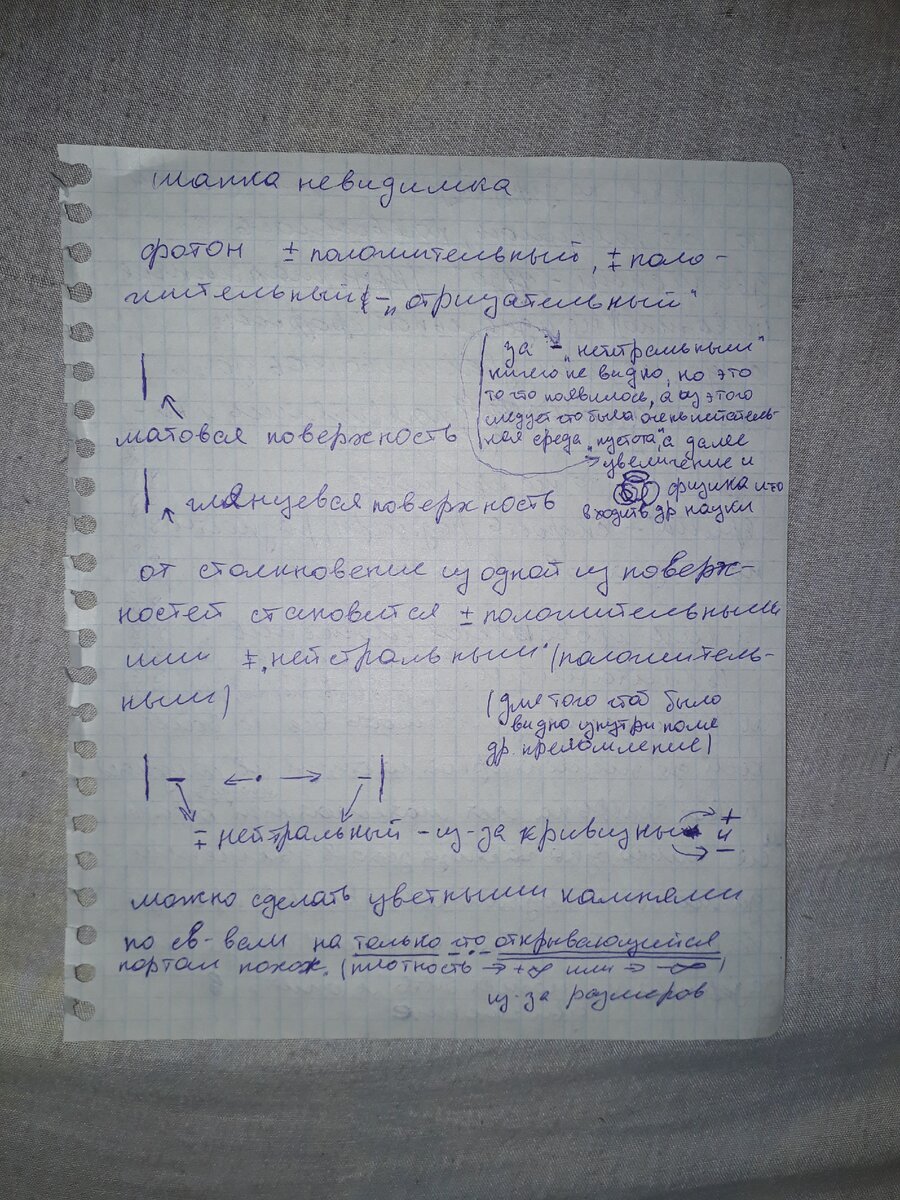 шапка невидимка
фотон ± положительный, ∓ поло-
жительный - „отрицательный"
за - „нейтральными"
ничего не видно, но это
то что появилось, а из этого
следует что была очень
ная среда „пустота", а далее
→ увеличение и
физика и то
входить др науки
матовся поверхность
глянцевся поверхность
от столкновение из одной из поверх-
ностей становится ± положительными
или ∓ „нейстральными" (положитель-
ными)
(для того чтоб было
видно изнутри поле
др. преломление)
- ← · → -
∓ нейтральный - из-за кривизны + и -
можно сделать цветными камнями
по св-вам на только что открывающийся
портал похож. (плотность → +∞ или → -∞)
из-за размеров